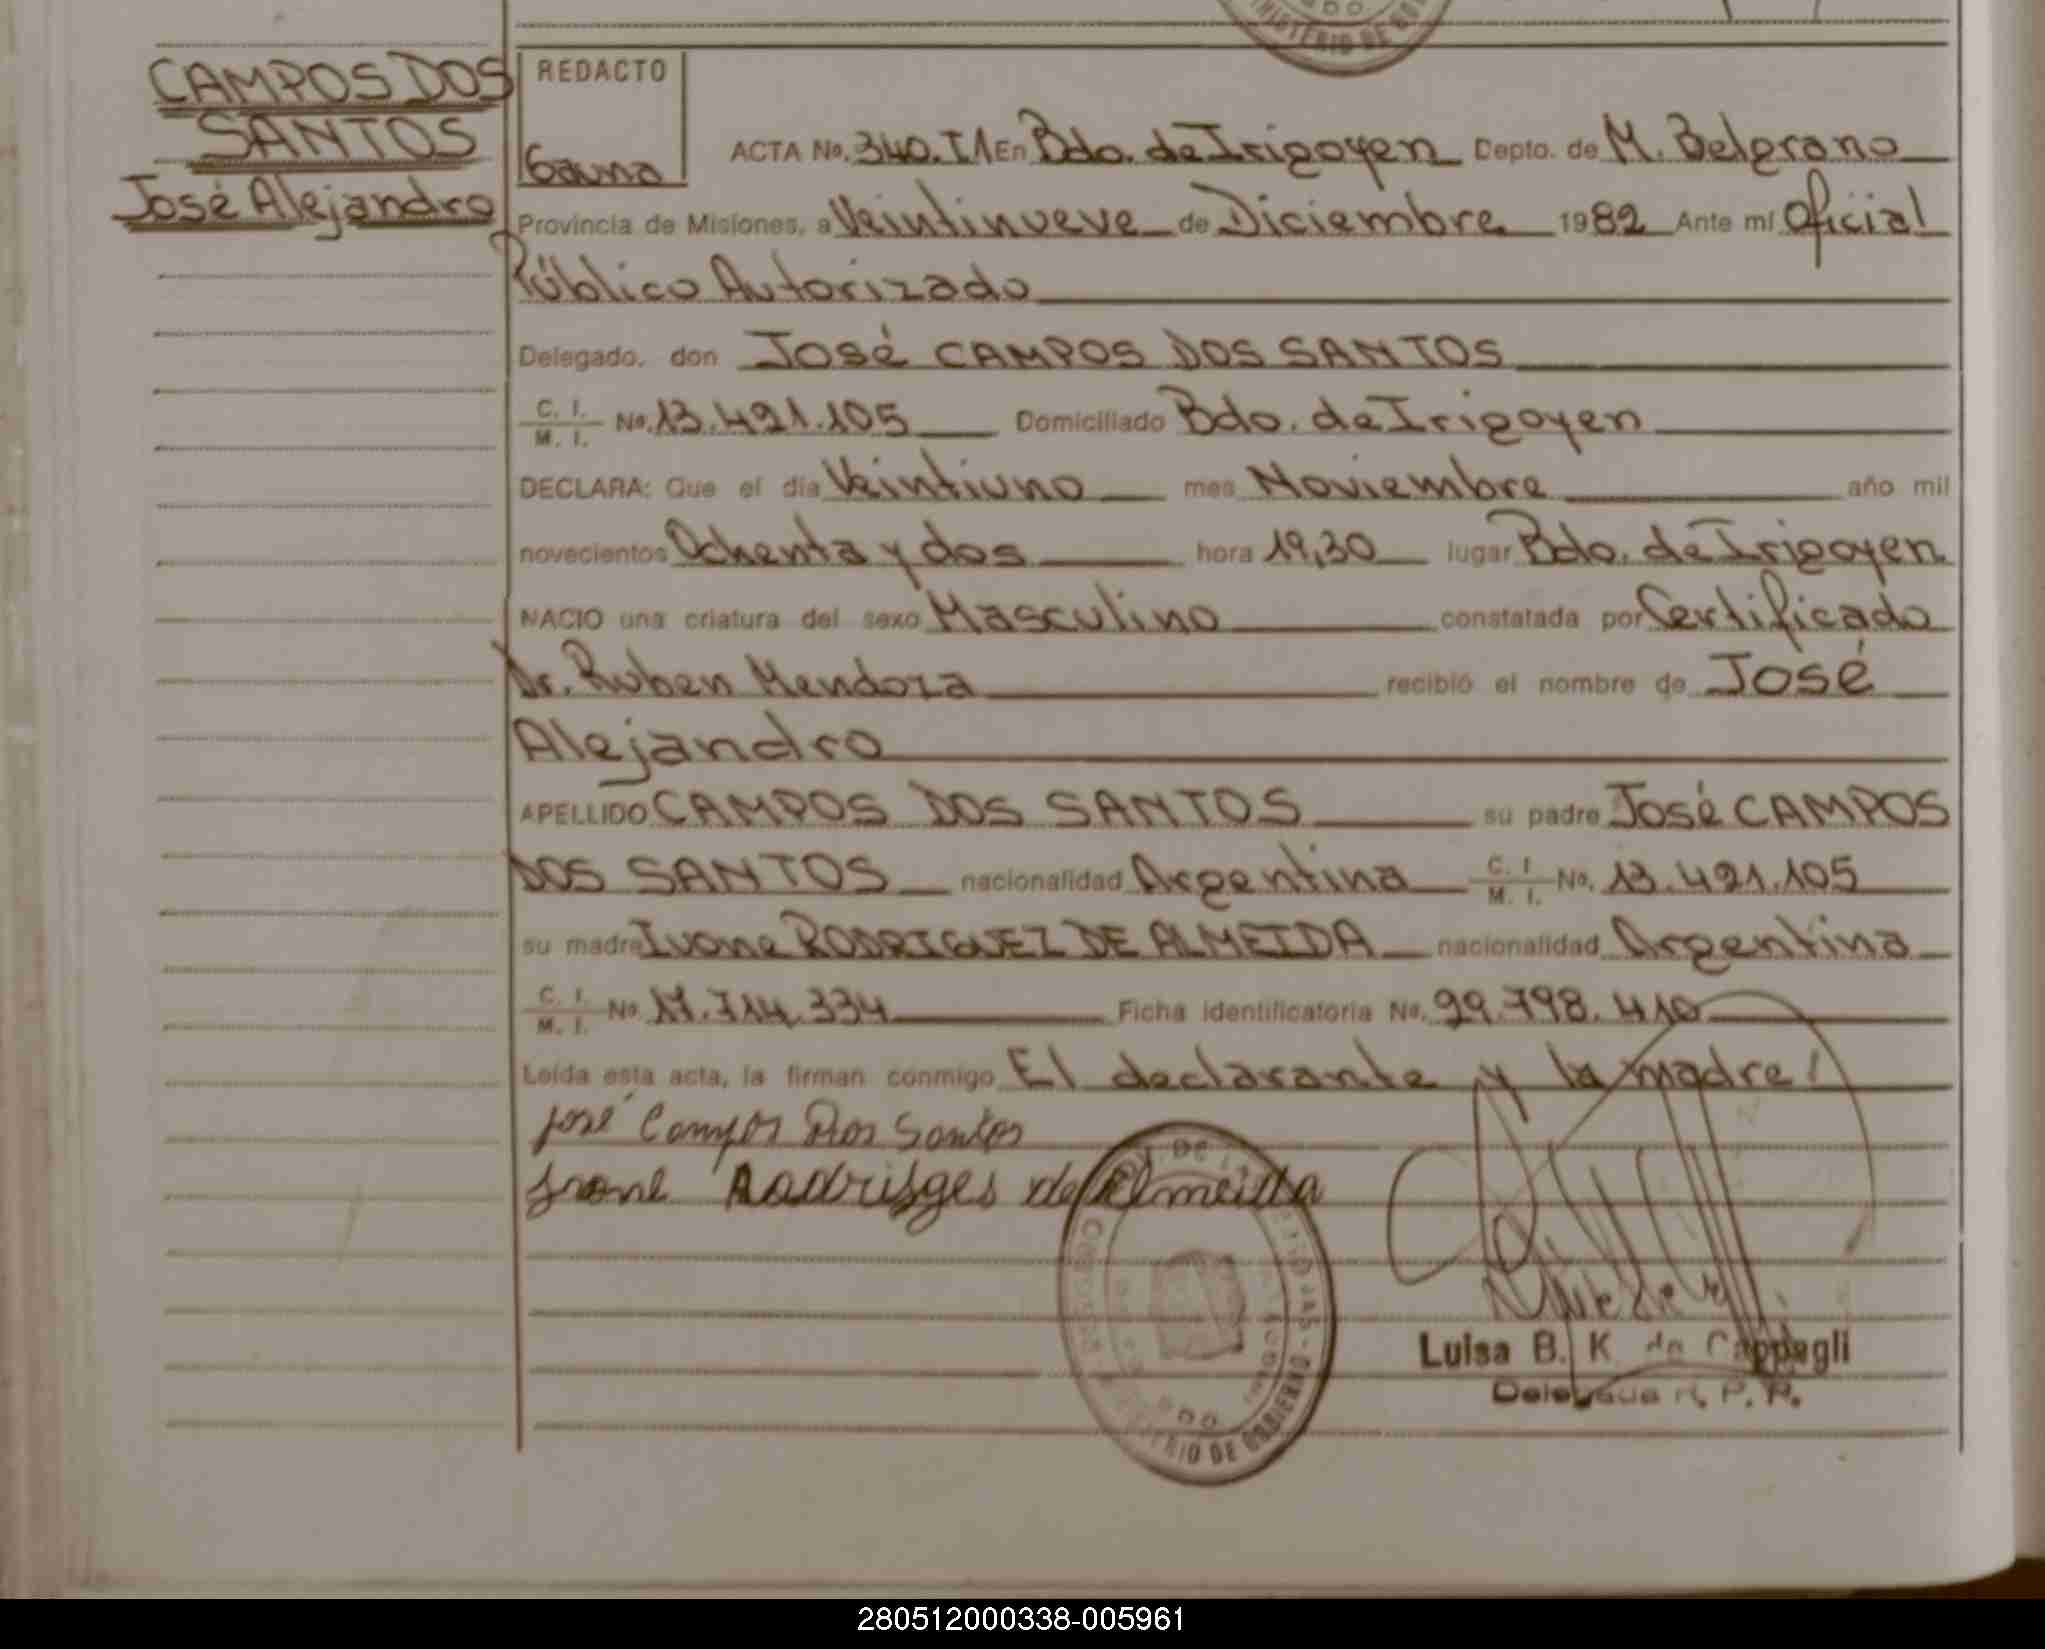 CAMPOS DOS
SANTOS
José Alejandro
REDACTO
Gauna
ACTA No. 340. T1 En Bdo. de Irigoyen Depto. de M. Belgrano
Provincia de Misiones, a Veintinueve de Diciembre 1982 Ante mí Oficial
Público Autorizado
Delegado, don José CAMPOS DOS SANTOS
C. I. / M. I. No. 13.421.105 Domiciliado Bdo. de Irigoyen
DECLARA: Que el día Veintiuno mes Noviembre año mil
novecientos Ochenta y dos hora 19,30 lugar Bdo. de Irigoyen
NACIO una criatura del sexo Masculino constatada por Certificado
Dr. Ruben Mendoza recibió el nombre de José
Alejandro
APELLIDO CAMPOS DOS SANTOS su padre José CAMPOS
DOS SANTOS nacionalidad Argentina C. I. / M. I. No. 13.421.105
su madre Ivone RODRIGUEZ DE ALMEIDA nacionalidad Argentina
C. I. / M. I. No. 17.714.334 Ficha identificatoria No. 99.798.410
Leída esta acta, la firman conmigo El declarante y la madre!
José Campos Dos Santos
Ivone Rodrisges de Almeida
MINISTERIO DE GOBIERNO
Luisa B. K de Cappagli
Delegada R. P. P.
280512000338-005961